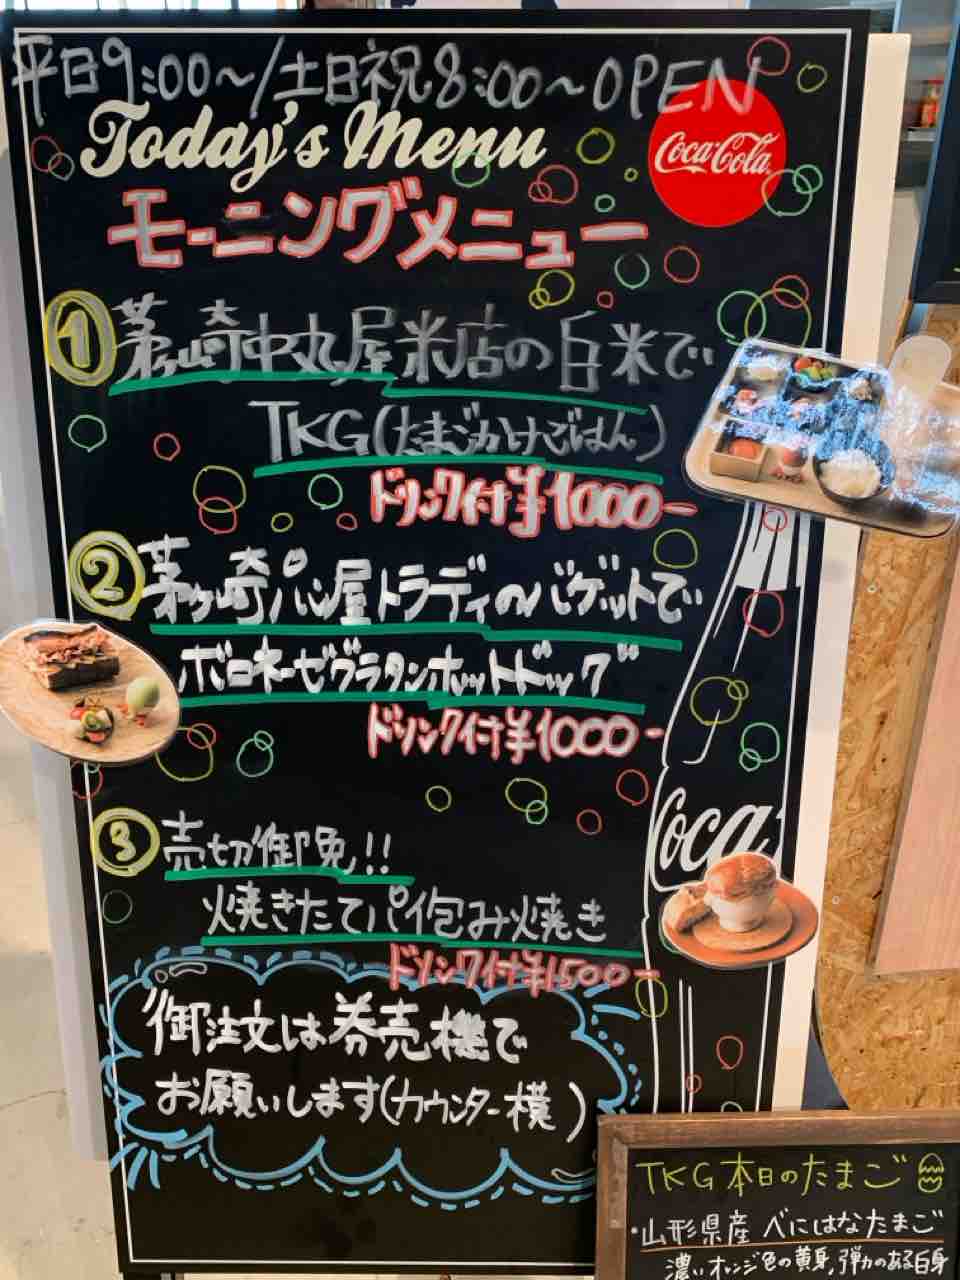 平日9:00～/土日祝8:00～OPEN
Today's Menu
Coca-Cola
モーニングメニュー
① 茅ヶ崎中丸屋米店の白米で
TKG(たまごかけごはん)
ドリンク付¥1000-
② 茅ヶ崎パン屋トラディのバゲットで
ボロネーゼグラタンホットドッグ
ドリンク付¥1000-
③ 売切御免!!
焼きたてパイ包み焼き
ドリンク付¥1500-
Coca
御注文は券売機で
お願いします(カウンター横)
TKG本日のたまご
・山形県産 べにはなたまご
濃いオレンジ色の黄身、弾力のある白身